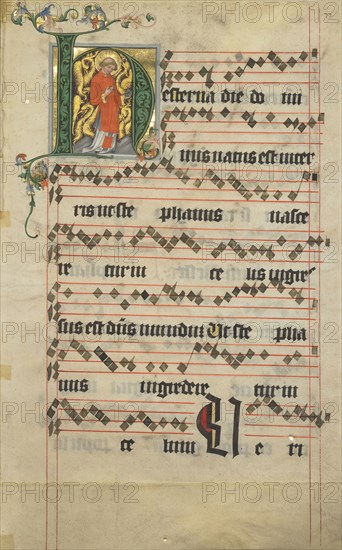 Hesterna die do mi
nus natus est in ter
ris ut ste phanus nasce
re tur in ce lis in gres
sus est dns mundum Ut ste pha
nus ingredere tur in
ce lum U e ri